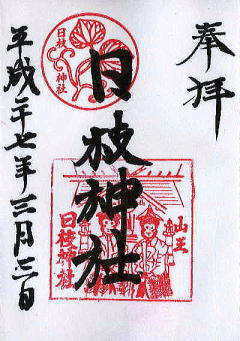 奉拝
日枝神社
平成二十七年三月三日
日枝神社
山王
日枝神社